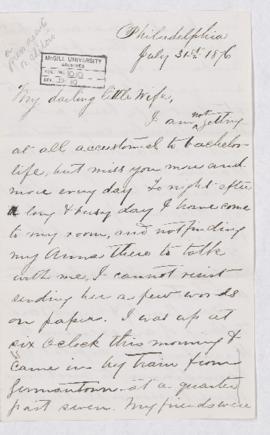 Philadelphia
July 31st 1876
McGILL UNIVERSITY
ARCHIVES
ACC. NO. 1010
REF.
My darling little Wife,
I am not getting
at all accustomed to bachelor
life, but miss you more and
more every day. To night after
a long & busy day I have come
to my room, and not finding
my Anna there to talk
with me, I cannot resist
sending her a few words
on paper. I was up at
six o'clock this morning &
came in by train from
Germantown at a quarter
past seven. My friends were